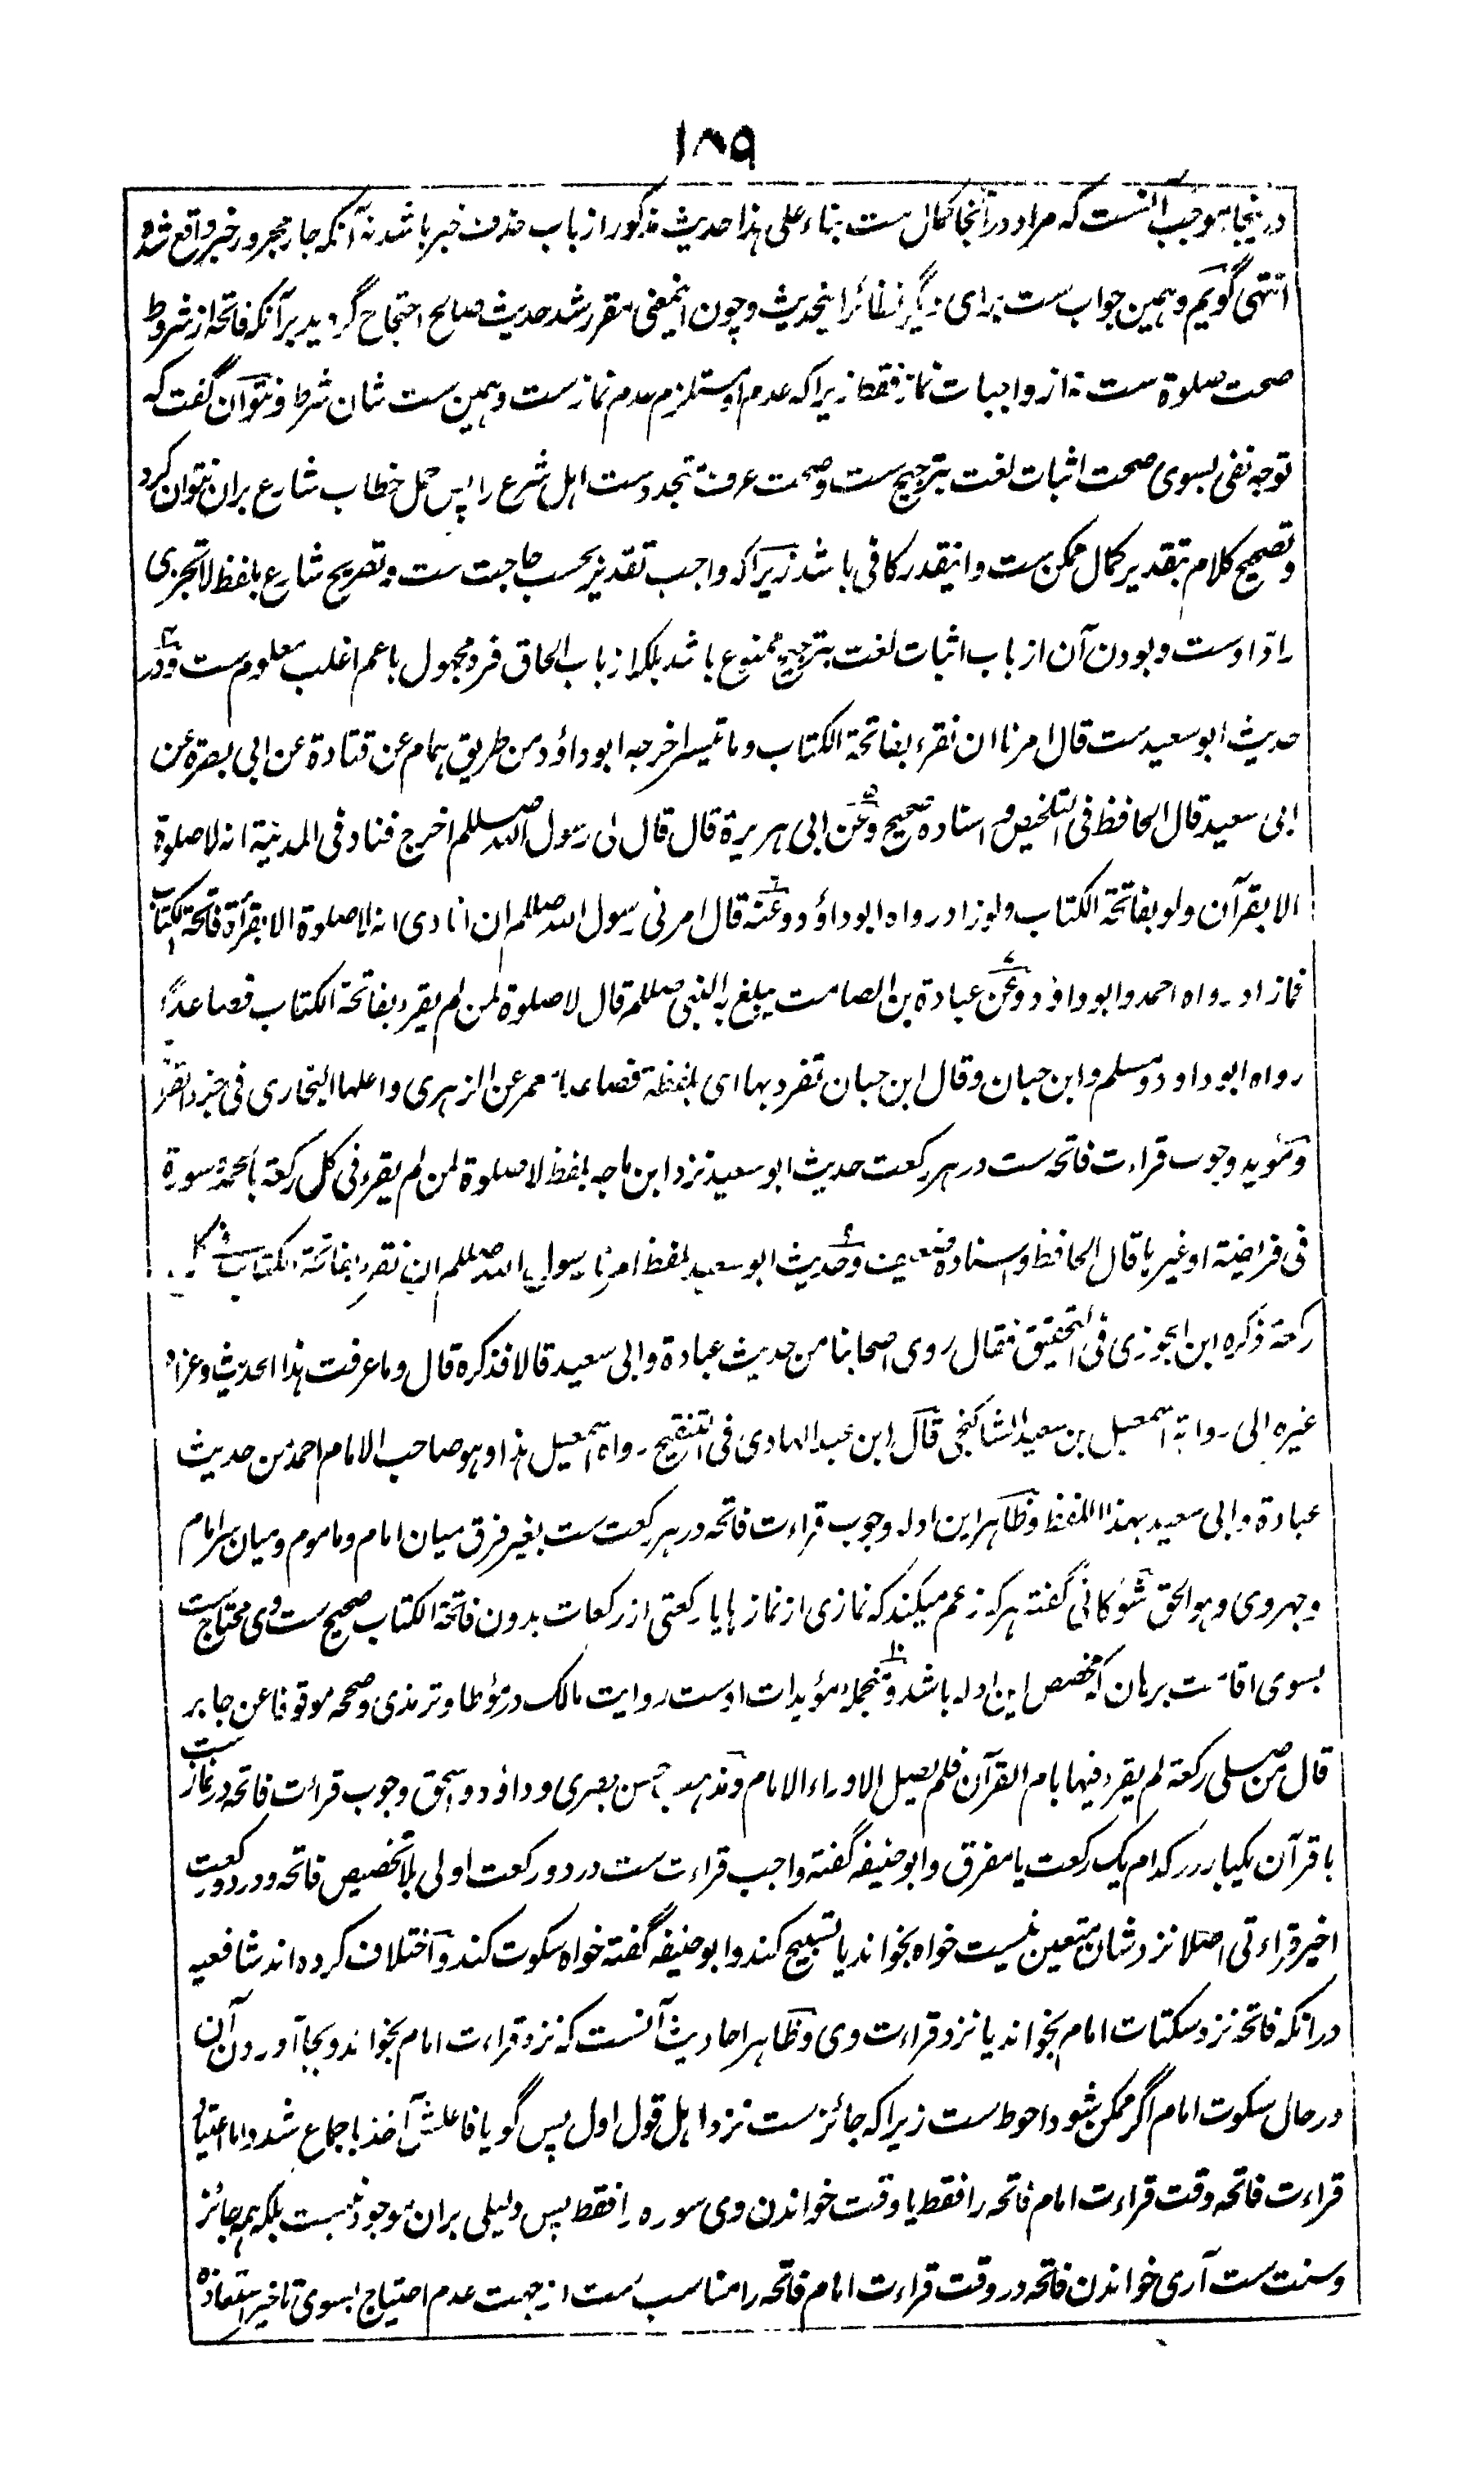 ۱۸۹
درینجا موجب آنست که مراد در آنجا کمال ست بناء علی هذا حدیث مذکور از باب حذف خبر باشد نه آنکه جار مجرور خبر واقع شده
انتهی گویم و همین جواب ست برای دیگر نظائر اینحدیث و چون اینمعنی مقرر شد حدیث صالح احتجاج گردید بر آنکه فاتحه از شروط
صحت صلوة ست نه از واجبات نماز فقط زیرا که عدم او مستلزم عدم نماز ست و همین ست شان شرط و نتوان گفت که
توجه نفی بسوی صحت اثبات لغت بترجیح ست و صحت عرف متجدد ست اهل شرع را پس حمل خطاب شارع بران نتوان کرد
و تصحیح کلام بتقدیر کمال ممکن ست و اینقدر کافی باشد زیرا که واجب تقدیر بحسب حاجت ست و تصریح شارع بلفظ لا تجزی
رادّ اوست و بودن آن از باب اثبات لغت بترجیح ممنوع باشد بلکه از باب الحاق فرد مجهول باعم اغلب معلوم ست و در
حدیث ابو سعید ست قال امرنا ان نقرء بفاتحة الکتاب و ما تیسر اخرجه ابو داؤد من طریق همام عن قتادة عن ابی بصرة عن
ابی سعید قال الحافظ فی التلخیص و اسناده صحیح و عن ابی هریرة قال قال لی رسول الله صللم اخرج فناد فی المدینة انه لا صلوة
الا بقرآن ولو بفاتحة الکتاب ولو زاد رواه ابو داؤد و عنه قال امرنی رسول الله صللم ان انادی انه لا صلوة الا بقرأة فاتحة الکتاب
فما زاد رواه احمد و ابو داؤد و عن عبادة بن الصامت یبلغ به النبی صللم قال لا صلوة لمن لم یقرء بفاتحة الکتاب فصاعدًا
رواه ابو داود و مسلم و ابن حبان و قال ابن حبان تفرد بها ای بلفظة فصاعدا معمر عن الزهری و اعلها البخاری فی جزء القراءة
و مؤید وجوب قراءت فاتحه ست در هر رکعت حدیث ابو سعید نزد ابن ماجه بلفظ لا صلوة لمن لم یقرء فی کل رکعة بالحمد و سورة
فی فریضة او غیرها قال الحافظ و اسناده ضعیف و حدیث ابو سعید بلفظ امرنا رسول الله صللم ان نقرء بفاتحة الکتاب فی کل
رکعة ذکره ابن الجوزی فی التحقیق فقال روی اصحابنا من حدیث عبادة و ابی سعید قالا فذکره قال و ما عرفت هذا الحدیث و عزاه
غیره الی روایة اسمعیل بن سعید الشالنجی قال ابن عبد الهادی فی التنقیح رواه اسمعیل هذا و هو صاحب الامام احمد من حدیث
عبادة و ابی سعید بهذا اللفظ و ظاهر این ادله وجوب قراءت فاتحه در هر رکعت ست بغیر فرق میان امام و ماموم و میان سر امام
و جهر وی و هو الحق شوکانی گفته هر که زعم میکند که نمازی از نمازها یا رکعتی از رکعات بدون فاتحة الکتاب صحیح ست وی محتاج ست
بسوی اقامت برهان که مخصص این ادله باشد و منجمله مؤیدات اوست روایت مالک در مؤطا و ترمذی و صححه موقوفا عن جابر
قال من صلی رکعة لم یقرء فیها بام القرآن فلم یصل الا وراء الامام و مذهب حسن بصری و داؤد و اسحق وجوب قرائت فاتحه در نماز ست
با قرآن یکبار در کدام یک رکعت یا مفرق و ابو حنیفه گفته واجب قراءت ست در دو رکعت اولی بلا تخصیص فاتحه و در دو رکعت
اخیر قراءتی اصلا نزد شان متعین نیست خواه بخواند یا تسبیح کند و ابو حنیفه گفته خواه سکوت کند و اختلاف کرده اند شافعیه
در انکه فاتحه نزد سکتات امام بخواند یا نزد قراءت وی و ظاهر احادیث آنست که نزد قراءت امام بخواند و بجا آوردن آن
در حال سکوت امام اگر ممکن شود احوط ست زیرا که جائز ست نزد اهل قول اول پس گویا فاعلش آخذ باجماع شد و اما اعتیاد
قراءت فاتحه وقت قراءت امام فاتحه را فقط یا وقت خواندن وی سوره را فقط پس دلیلی بران موجود نیست بلکه همه جائز
و سنت ست آری خواندن فاتحه در وقت قراءت امام فاتحه را مناسب ست از جهت عدم احتیاج بسوی تاخیر استعاذه